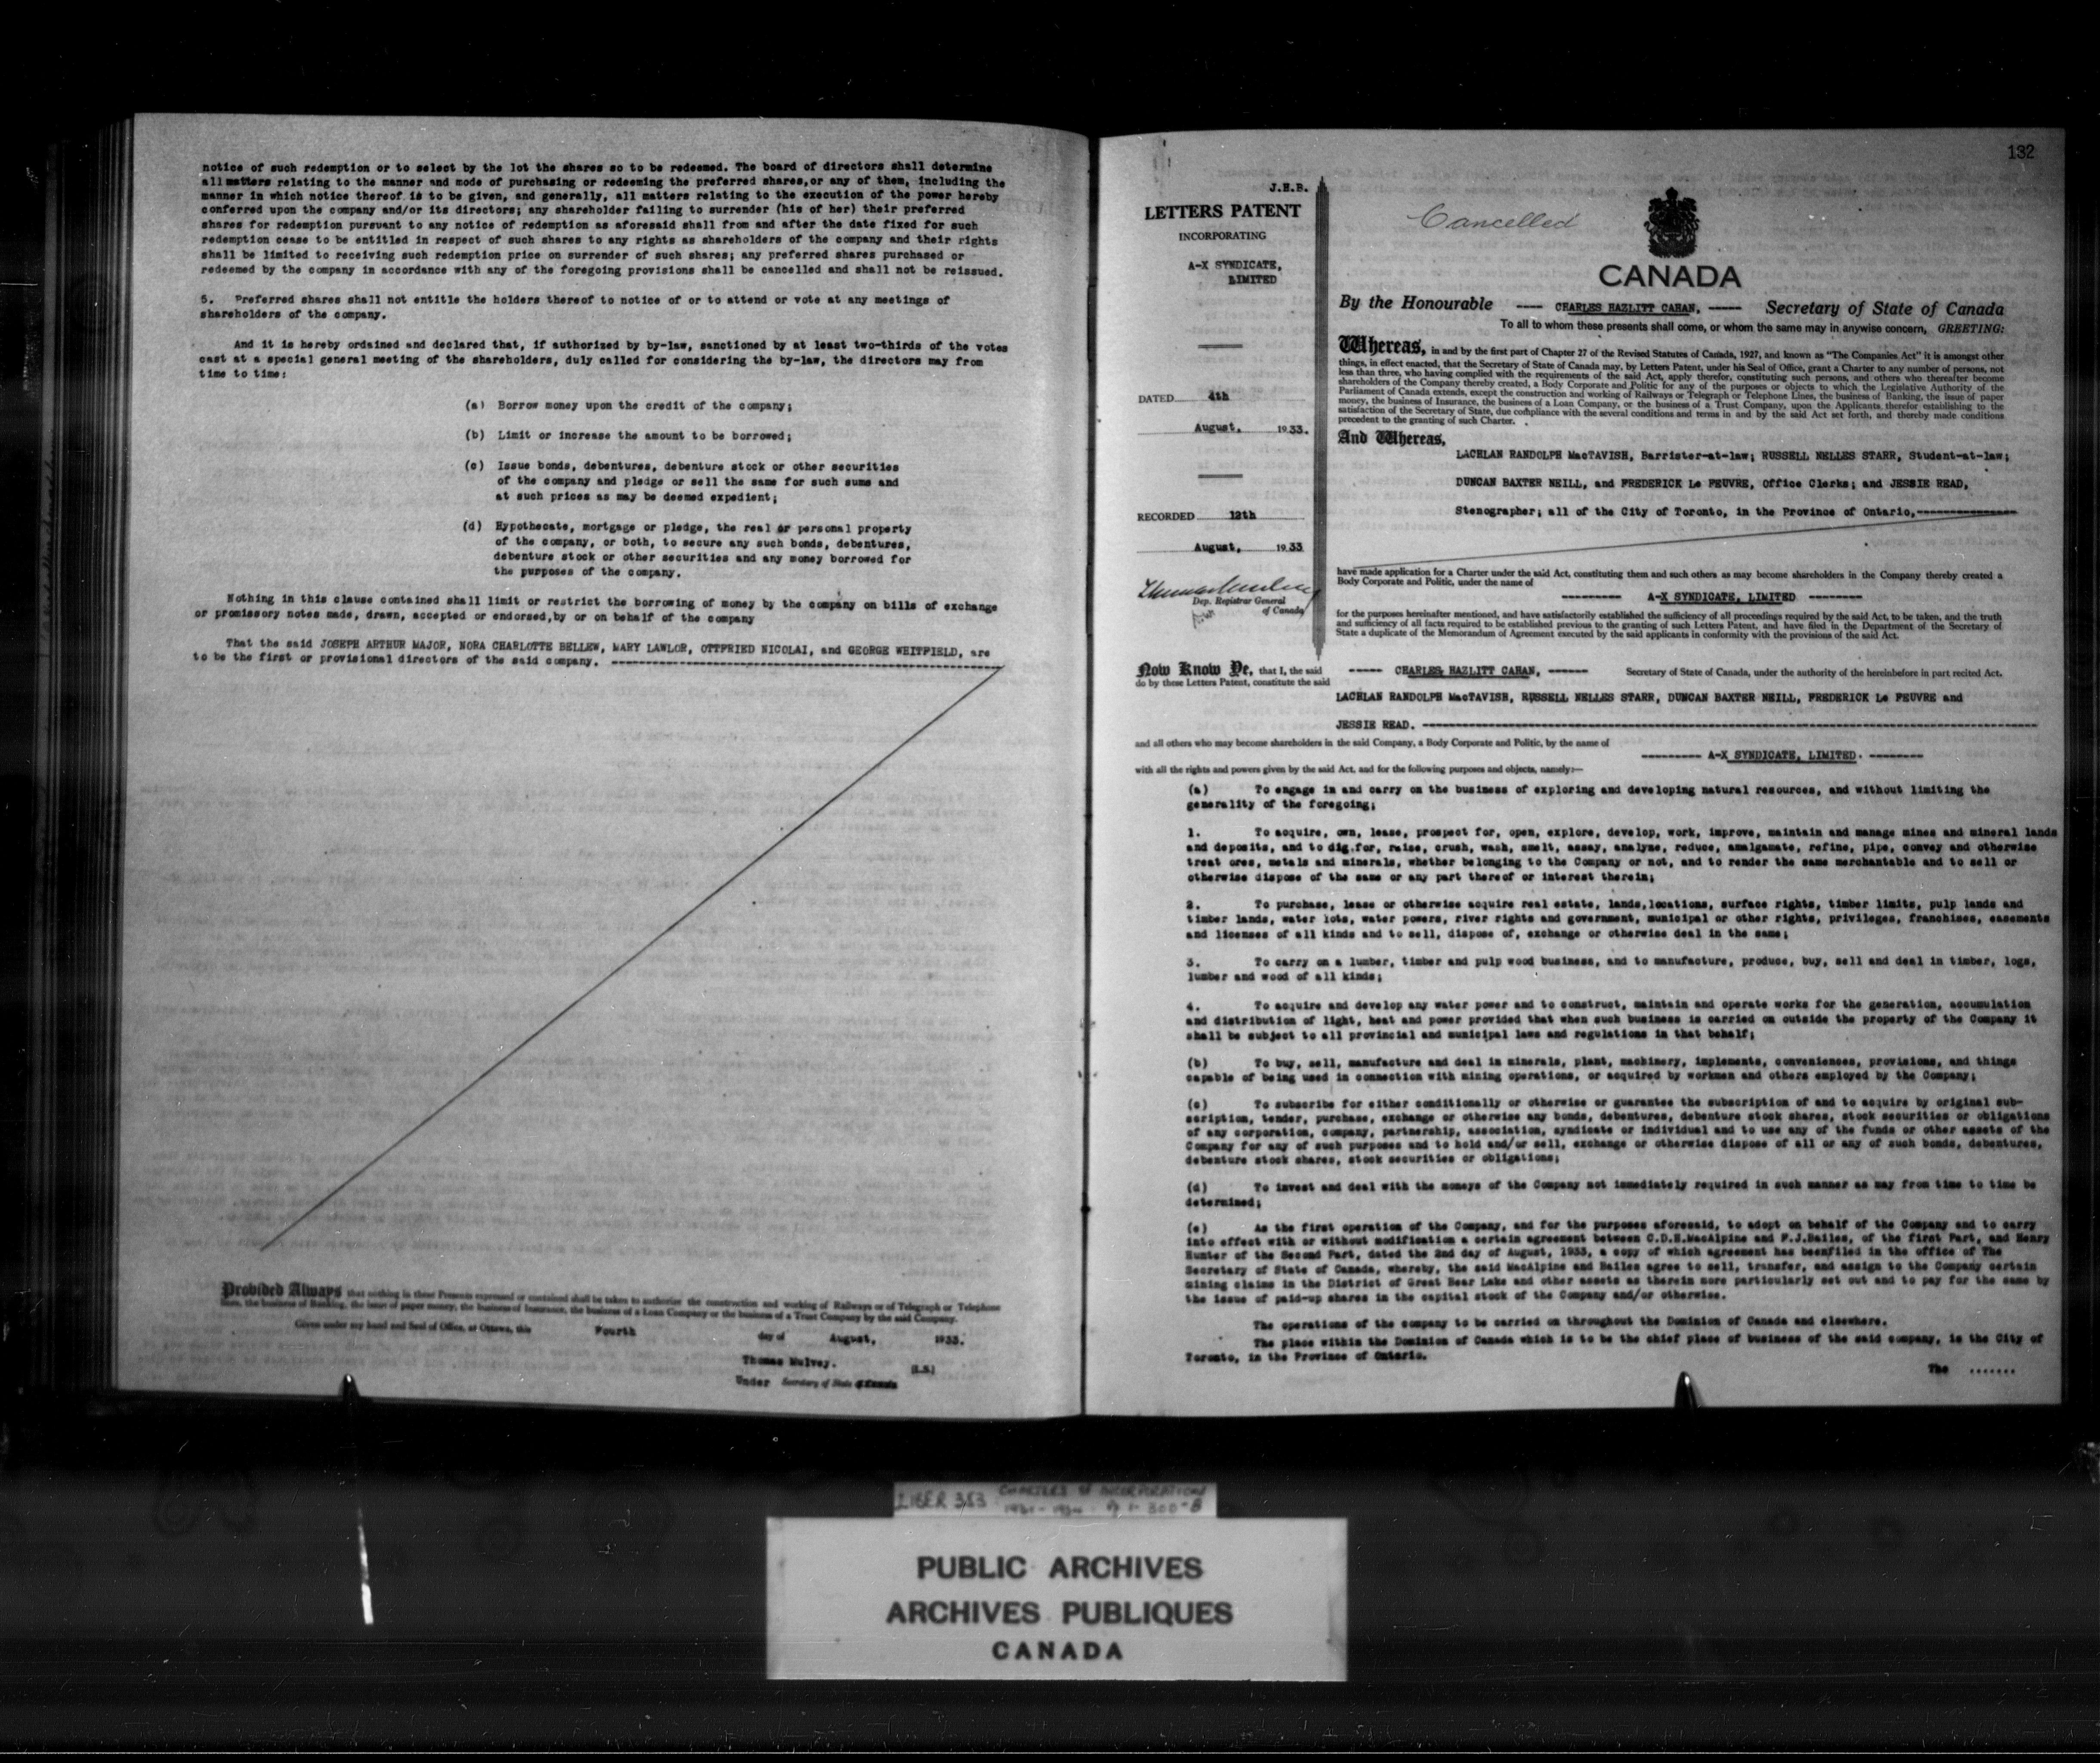 notice of such redemption or to select by the lot the shares so to be redeemed. The board of directors shall determine
all matters relating to the manner and mode of purchasing or redeeming the preferred shares,or any of them, including the
manner in which notice thereof is to be given, and generally, all matters relating to the execution of the power hereby
conferred upon the company and/or its directors; any shareholder failing to surrender (his of her) their preferred
shares for redemption pursuant to any notice of redemption as aforesaid shall from and after the date fixed for such
redemption cease to be entitled in respect of such shares to any rights as shareholders of the company and their rights
shall be limited to receiving such redemption price on surrender of such shares; any preferred shares purchased or
redeemed by the company in accordance with any of the foregoing provisions shall be cancelled and shall not be reissued.
5. Preferred shares shall not entitle the holders thereof to notice of or to attend or vote at any meetings of
shareholders of the company.
And it is hereby ordained and declared that, if authorized by by-law, sanctioned by at least two-thirds of the votes
cast at a special general meeting of the shareholders, duly called for considering the by-law, the directors may from
time to time:
(a) Borrow money upon the credit of the company;
(b) Limit or increase the amount to be borrowed;
(c) Issue bonds, debentures, debenture stock or other securities
of the company and pledge or sell the same for such sums and
at such prices as may be deemed expedient;
(d) Hypothecate, mortgage or pledge, the real or personal property
of the company, or both, to secure any such bonds, debentures,
debenture stock or other securities and any money borrowed for
the purposes of the company.
Nothing in this clause contained shall limit or restrict the borrowing of money by the company on bills of exchange
or promissory notes made, drawn, accepted or endorsed,by or on behalf of the company
That the said JOSEPH ARTHUR MAJOR, NORA CHARLOTTE BELLEW, MARY LAWLOR, OTTFRIED NICOLAI, and GEORGE WEITFIELD, are
to be the first or provisional directors of the said company.
Provided Always that nothing in these Presents expressed or contained shall be taken to authorize the construction and working of Railways or of Telegraph or Telephone
lines, the business of Banking, the issue of paper money, the business of Insurance, the business of a Loan Company or the business of a Trust Company by the said Company.
Given under my hand and Seal of Office, at Ottawa, this Fourth day of August, 1933.
Thomas Mulvey. (L.S.)
Under Secretary of State of Canada
132
J.H.B.
LETTERS PATENT
INCORPORATING
A-X SYNDICATE,
LIMITED
DATED 4th
August, 1933.
RECORDED 12th
August, 1933
Dep. Registrar General
of Canada
Cancelled
CANADA
By the Honourable ---- CHARLES HAZLITT CAHAN, ----- Secretary of State of Canada
To all to whom these presents shall come, or whom the same may in anywise concern, GREETING:
Whereas, in and by the first part of Chapter 27 of the Revised Statutes of Canada, 1927, and known as "The Companies Act" it is amongst other
things, in effect enacted, that the Secretary of State may, by Letters Patent, under his Seal of Office, grant a Charter to any number of persons, not
less than three, who having complied with the requirements of the said Act, apply therefor, constituting such persons, and others who thereafter become
shareholders of the Company thereby created, a Body Corporate and Politic for any of the purposes or objects to which the Legislative Authority of the
Parliament of Canada extends, except the construction and working of Railways or Telegraph or Telephone Lines, the business of Banking, the issue of paper
money, the business of Insurance, the business of a Loan Company, or the business of a Trust Company, upon the Applicants therefor establishing to the
satisfaction of the Secretary of State, due compliance with the several conditions and terms in and by the said Act set forth, and thereby made conditions
precedent to the granting of such Charter.
And Whereas,
LACHLAN RANDOLPH MacTAVISH, Barrister-at-law; RUSSELL NELLES STARR, Student-at-law;
DUNCAN BAXTER NEILL, and FREDERICK Le FEUVRE, Office Clerks; and JESSIE READ,
Stenographer; all of the City of Toronto, in the Province of Ontario,
have made application for a Charter under the said Act, constituting them and such others as may become shareholders in the Company thereby created a
Body Corporate and Politic, under the name of
--------- A-X SYNDICATE, LIMITED --------
for the purposes hereinafter mentioned, and have satisfactorily established the sufficiency of all proceedings required by the said Act, to be taken, and the truth
and sufficiency of all facts required to be established previous to the granting of such Letters Patent, and have filed in the Department of the Secretary of
State a duplicate of the Memorandum of Agreement executed by the said applicants in conformity with the provisions of the said Act.
Now Know Ye, that I, the said ----- CHARLES HAZLITT CAHAN, ------ Secretary of State of Canada, under the authority of the hereinbefore in part recited Act,
do by these Letters Patent, constitute the said
LACHLAN RANDOLPH MacTAVISH, RUSSELL NELLES STARR, DUNCAN BAXTER NEILL, FREDERICK Le FEUVRE and
JESSIE READ.
and all others who may become shareholders in the said Company, a Body Corporate and Politic, by the name of
--------- A-X SYNDICATE, LIMITED. --------
with all the rights and powers given by the said Act, and for the following purposes and objects, namely:—
(a) To engage in and carry on the business of exploring and developing natural resources, and without limiting the
generality of the foregoing;
1. To acquire, own, lease, prospect for, open, explore, develop, work, improve, maintain and manage mines and mineral lands
and deposits, and to dig.for, raise, crush, wash, smelt, assay, analyse, reduce, amalgamate, refine, pipe, convey and otherwise
treat ores, metals and minerals, whether belonging to the Company or not, and to render the same merchantable and to sell or
otherwise dispose of the same or any part thereof or interest therein;
2. To purchase, lease or otherwise acquire real estate, lands,locations, surface rights, timber limits, pulp lands and
timber lands, water lots, water powers, river rights and government, municipal or other rights, privileges, franchises, easements
and licenses of all kinds and to sell, dispose of, exchange or otherwise deal in the same;
3. To carry on a lumber, timber and pulp wood business, and to manufacture, produce, buy, sell and deal in timber, logs,
lumber and wood of all kinds;
4. To acquire and develop any water power and to construct, maintain and operate works for the generation, accumulation
and distribution of light, heat and power provided that when such business is carried on outside the property of the Company it
shall be subject to all provincial and municipal laws and regulations in that behalf;
(b) To buy, sell, manufacture and deal in minerals, plant, machinery, implements, conveniences, provisions, and things
capable of being used in connection with mining operations, or acquired by workmen and others employed by the Company;
(c) To subscribe for either conditionally or otherwise or guarantee the subscription of and to acquire by original sub-
scription, tender, purchase, exchange or otherwise any bonds, debentures, debenture stock shares, stock securities or obligations
of any corporation, company, partnership, association, syndicate or individual and to use any of the funds or other assets of the
Company for any of such purposes and to hold and/or sell, exchange or otherwise dispose of all or any of such bonds, debentures,
debenture stock shares, stock securities or obligations;
(d) To invest and deal with the moneys of the Company not immediately required in such manner as may from time to time be
determined;
(e) As the first operation of the Company, and for the purposes aforesaid, to adopt on behalf of the Company and to carry
into effect with or without modification a certain agreement between C.D.H.MacAlpine and F.J.Bailes, of the first Part, and Henry
Hunter of the Second Part, dated the 2nd day of August, 1933, a copy of which agreement has beenfiled in the office of The
Secretary of State of Canada, whereby, the said MacAlpine and Bailes agree to sell, transfer, and assign to the Company certain
mining claims in the District of Great Bear Lake and other assets as therein more particularly set out and to pay for the same by
the issue of paid-up shares in the capital stock of the Company and/or otherwise.
The operations of the company to be carried on throughout the Dominion of Canada and elsewhere.
The place within the Dominion of Canada which is to be the chief place of business of the said company, is the City of
Toronto, in the Province of Ontario.
The .......
LIBER 353 CHARTERS OF INCORPORATION
PUBLIC ARCHIVES
ARCHIVES PUBLIQUES
CANADA